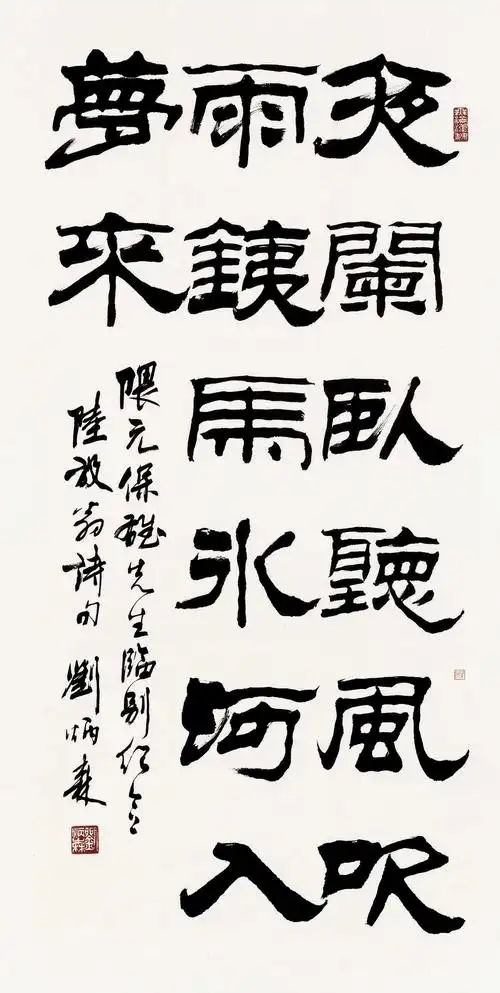 夜闌臥聽風吹
雨銕馬冰河入
夢來
隈元保雄先生臨別紀念
陸放翁詩句 劉炳森